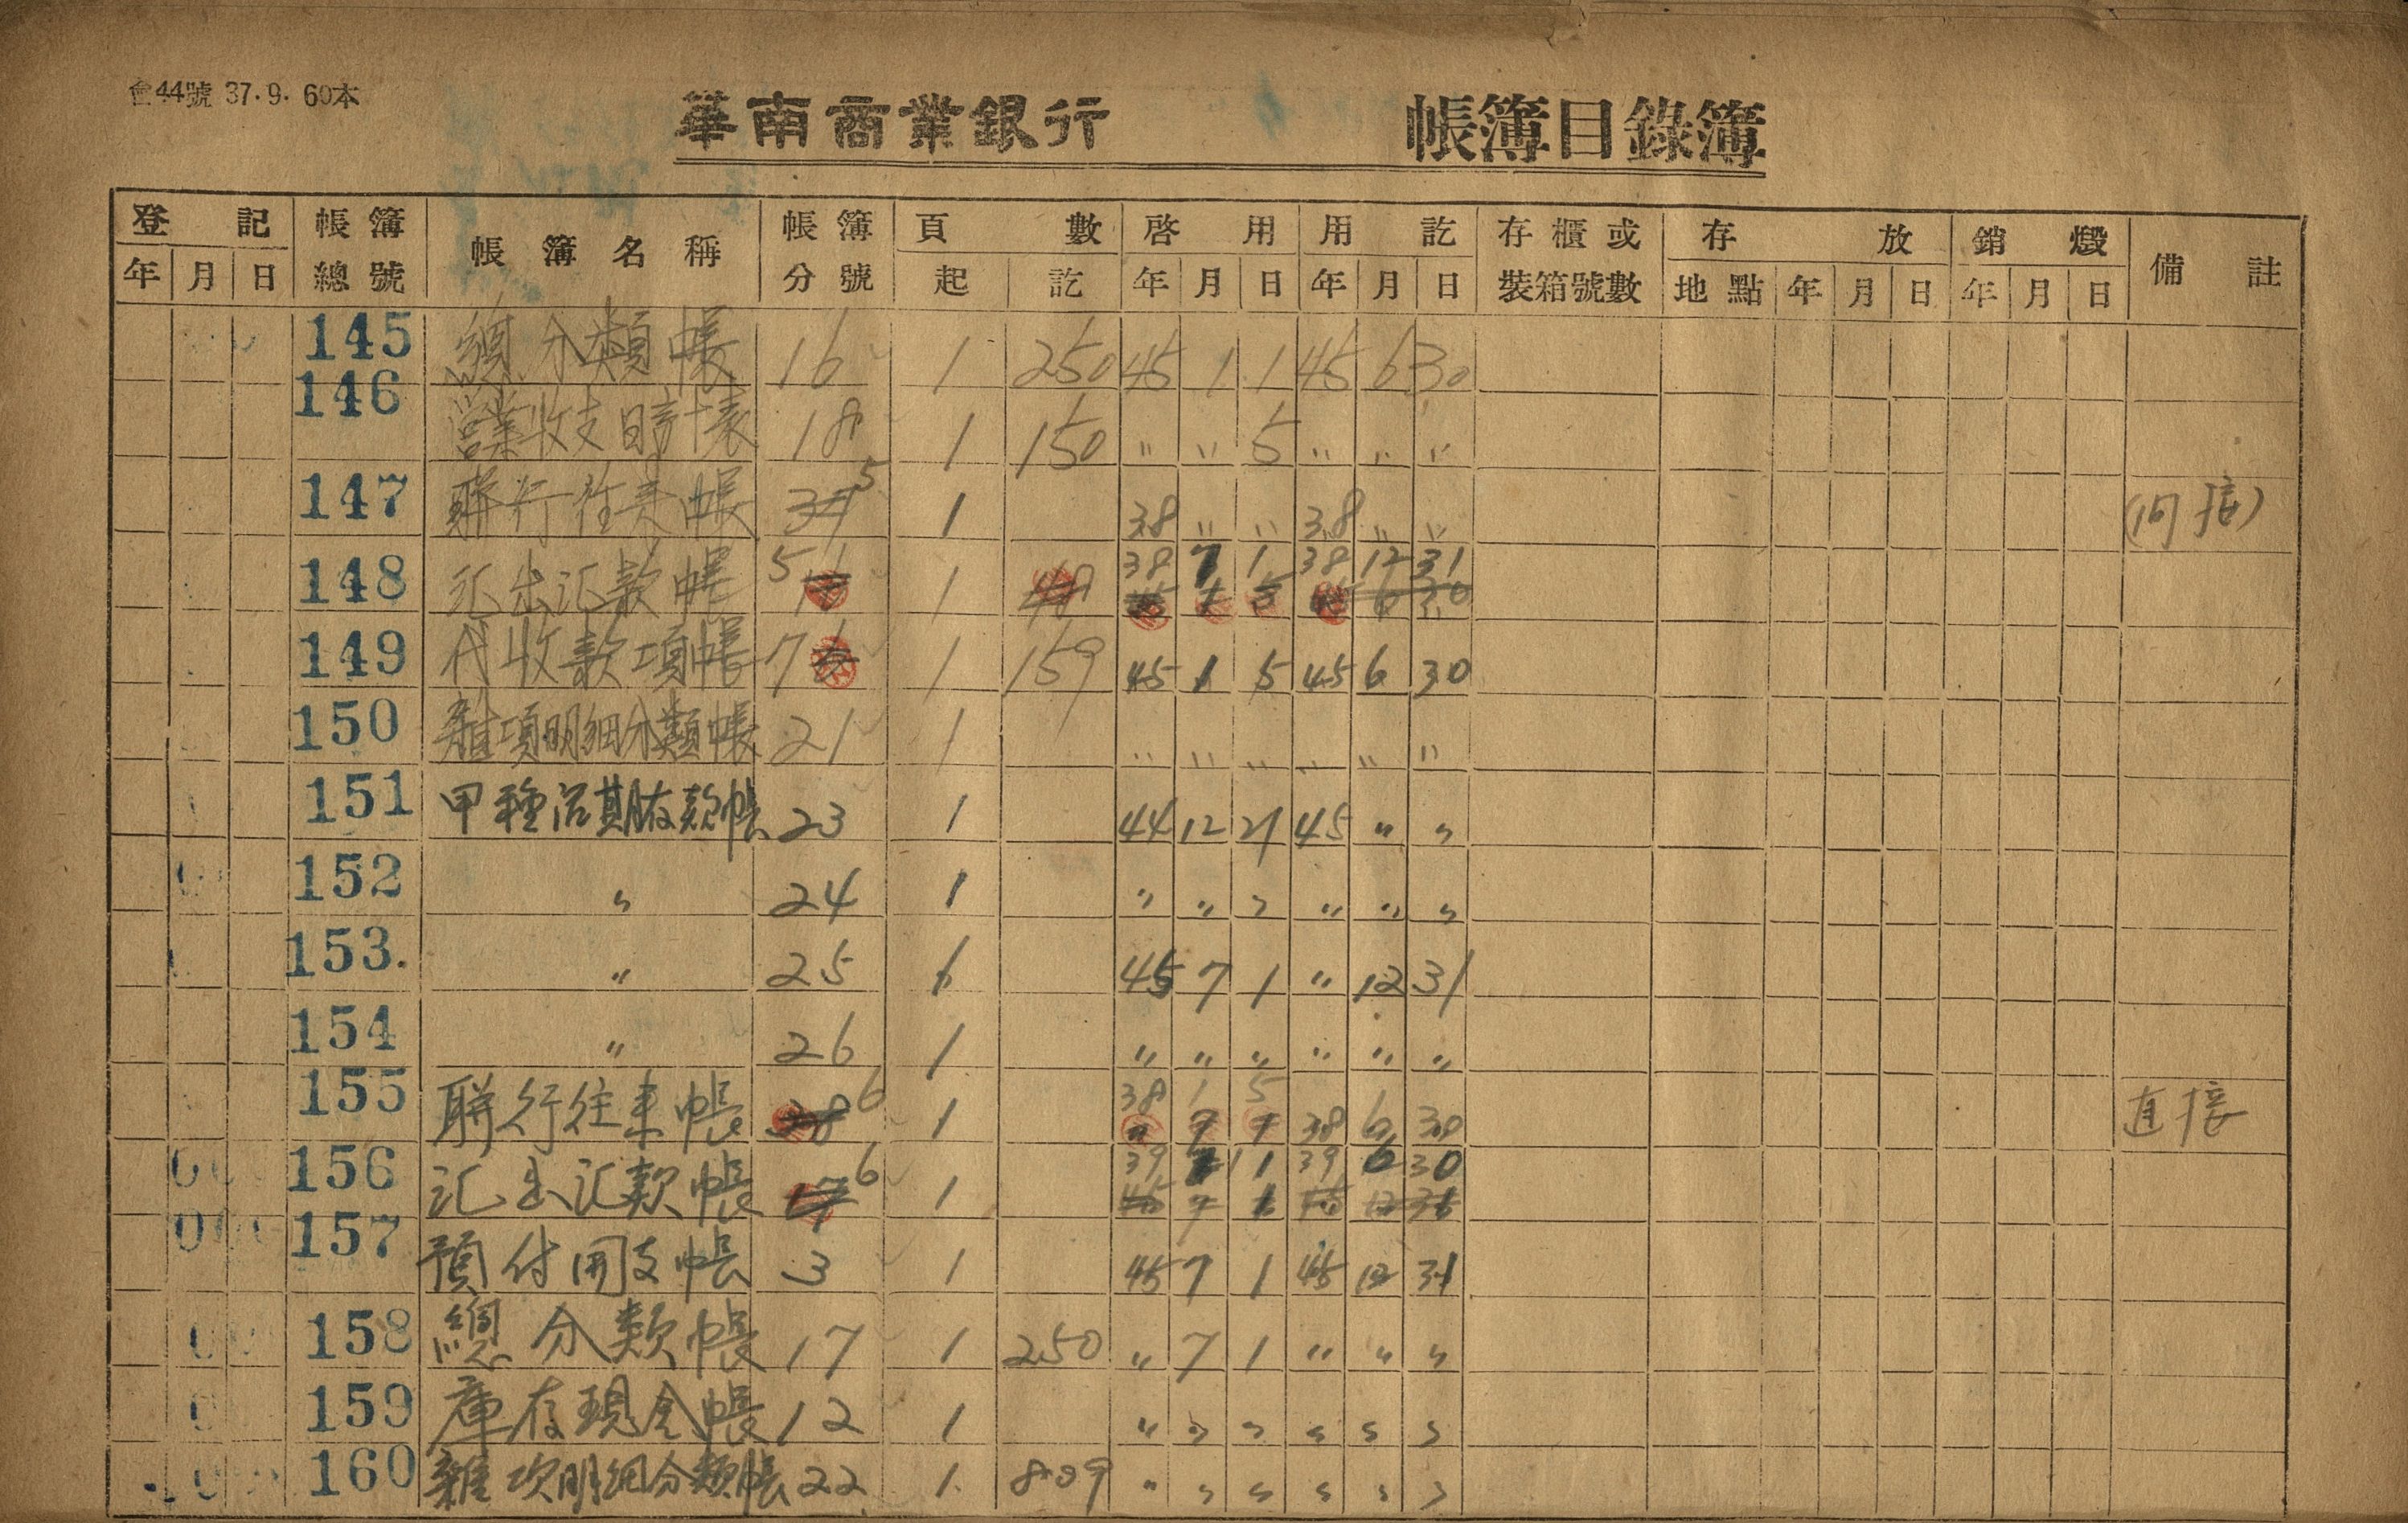 會44號 37.9. 60本
華南商業銀行 帳簿目錄簿
登記 帳簿總號 帳簿名稱 帳簿分號 頁數 啓用 用訖 存櫃或裝箱號數 存放 銷燬 備註
年 月 日 起 訖 年 月 日 年 月 日 地點 年 月 日 年 月 日
145 總分類帳 16 1 250 45 1 1 45 6 30
146 營業收支日計表 18 1 150 〃 〃 5 〃 〃 〃
147 聯行往來帳 5 1 38 〃 〃 38 〃 〃 (間接)
148 汇出汇款帳 5 1 38 7 1 38 12 31
149 代收款項帳 7 1 159 45 1 5 45 6 30
150 雜項明細分類帳 21 1 〃 〃 〃 〃 〃 〃
151 甲種活期存款帳 23 1 44 12 21 45 〃 〃
152 〃 24 1 〃 〃 〃 〃 〃 〃
153. 〃 25 1 45 7 1 〃 12 31
154 〃 26 1 〃 〃 〃 〃 〃 〃
155 聯行往來帳 6 1 38 1 5 38 6 30 直接
156 汇出汇款帳 6 1 39 1 1 39 6 30
157 預付開支帳 3 1 45 7 1 45 12 31
158 總分類帳 17 1 250 〃 7 1 〃 〃 〃
159 庫存現金帳 12 1 〃 〃 〃 〃 〃 〃
160 雜項明細分類帳 22 1 〃 〃 〃 〃 〃 〃